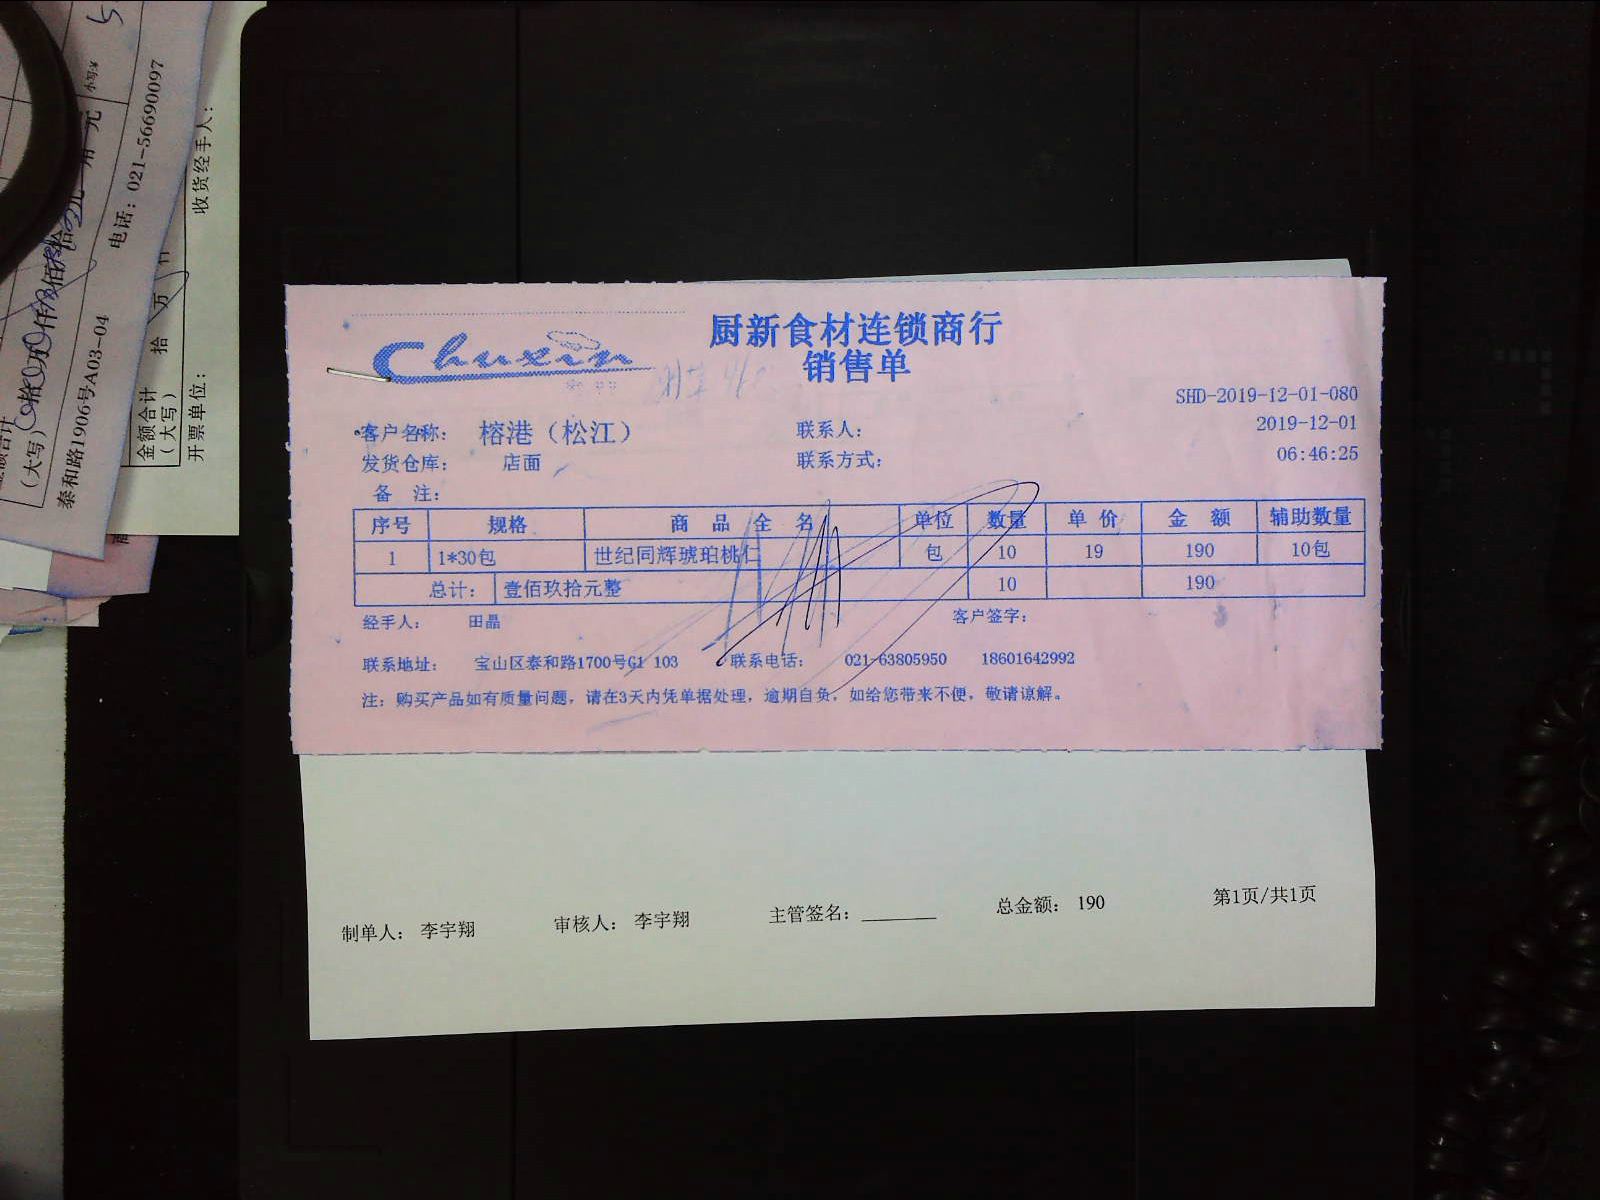 Chuxin
厨新食材连锁商行
销售单
SHD-2019-12-01-080
客户名称: 榕港（松江） 联系人: 2019-12-01
发货仓库: 店面 联系方式: 06:46:25
备 注:
序号 规格 商 品 全 名 单位 数量 单 价 金 额 辅助数量
1 1*30包 世纪同辉琥珀桃仁 包 10 19 190 10包
总计: 壹佰玖拾元整 10 190
经手人: 田晶 客户签字:
联系地址: 宝山区泰和路1700号G1 103 联系电话: 021-63805950 18601642992
注: 购买产品如有质量问题, 请在3天内凭单据处理, 逾期自负, 如给您带来不便, 敬请谅解。
制单人: 李宇翔 审核人: 李宇翔 主管签名: 总金额: 190 第1页/共1页
小写¥
(大写) 拾 万 仟 佰 拾 元 角
泰和路1906号A03-04 电话: 021-56690097
金额合计
(大写) 拾 万
开票单位: 收货经手人: